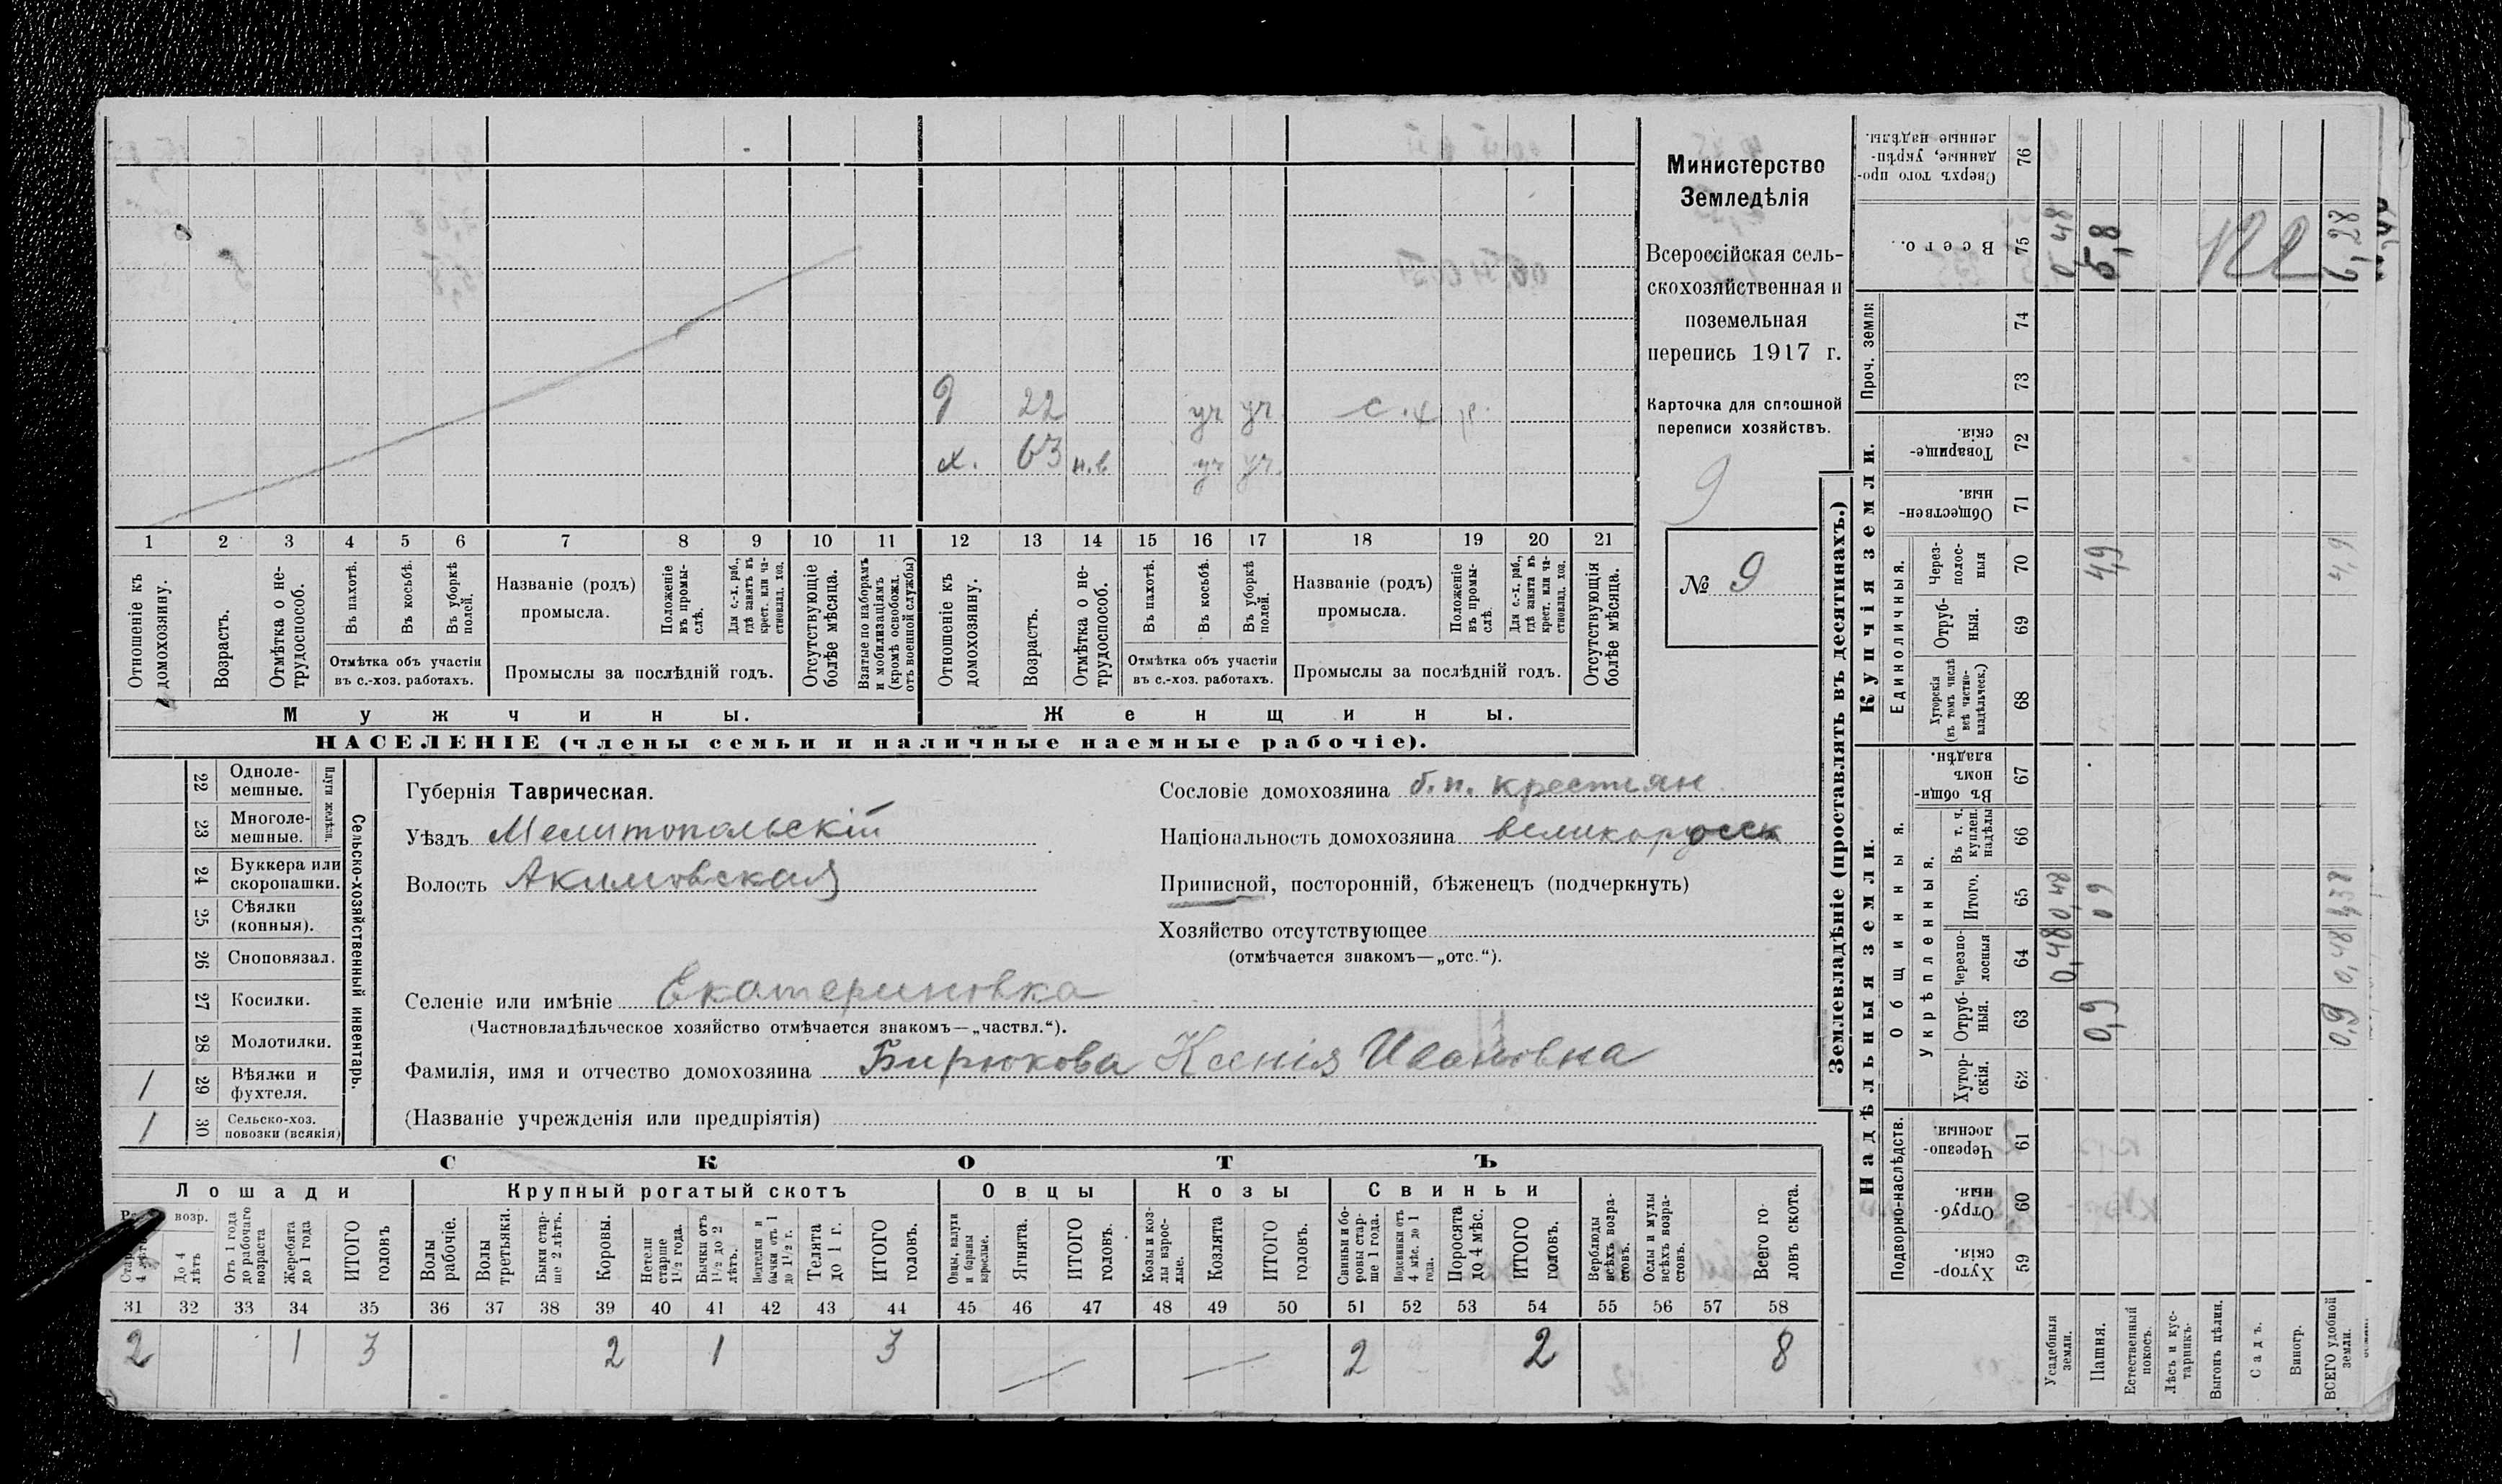 9 22 уч уч с.х р.
х. 63 н.в уч уч.
1 2 3 4 5 6 7 8 9 10 11 12 13 14 15 16 17 18 19 20 21
Отношеніе къ домохозяину.
Возрастъ.
Отмѣтка о не-трудоспособ.
Въ пахотѣ.
Въ косьбѣ.
Въ уборкѣ полей.
Отмѣтка объ участіи
въ с.-хоз. работахъ.
Названіе (родъ)
промысла.
Положеніе въ промы-слѣ.
Для с.-х. раб., гдѣ занятъ въ крест. или ча-стновлад. хоз.
Промыслы за послѣдній годъ.
Отсутствующіе болѣе мѣсяца.
Взятые по наборамъ и мобилизаціямъ (кромѣ освобожд. отъ военной службы)
Отношеніе къ домохозяину.
Возрастъ.
Отмѣтка о не-трудоспособ.
Въ пахотѣ.
Въ косьбѣ.
Въ уборкѣ полей.
Отмѣтка объ участіи
въ с.-хоз. работахъ.
Названіе (родъ)
промысла.
Положеніе въ промы-слѣ.
Для с.-х. раб., гдѣ занятъ въ крест. или ча-стновлад. хоз.
Промыслы за послѣдній годъ.
Отсутствующія болѣе мѣсяца.
Мужчины. Женщины.
НАСЕЛЕНІЕ (члены семьи и наличные наемные рабочіе).
Министерство
Земледѣлія
Всероссійская сель-
скохозяйственная и
поземельная
перепись 1917 г.
Карточка для сплошной
переписи хозяйствъ.
9
№ 9
Сельско-хозяйственный инвентарь.
Плуги желѣзн.
22 Одноле-
мешные.
23 Многоле-
мешные.
24 Буккера или
скоропашки.
25 Сѣялки
(конныя).
26 Сноповязал.
27 Косилки.
28 Молотилки.
1 29 Вѣялки и
фухтеля.
1 30 Сельско-хоз.
повозки (всякія)
Губернія Таврическая.
Уѣздъ Мелитопольскій
Волость Акимовская
Сословіе домохозяина б.п. крестьян
Національность домохозяина великорусск
Приписной, посторонній, бѣженецъ (подчеркнуть)
Хозяйство отсутствующее
(отмѣчается знакомъ—„отс.“).
Селеніе или имѣніе Екатериновка
(Частновладѣльческое хозяйство отмѣчается знакомъ—„частвл.“).
Фамилія, имя и отчество домохозяина Бирюкова Ксенія Ивановна
(Названіе учрежденія или предпріятія)
СКОТЪ
Лошади Крупный рогатый скотъ Овцы Козы Свиньи
возр.
До 4 лѣтъ
Отъ 1 года до рабочаго возраста
Жеребята до 1 года
ИТОГО головъ
Волы рабочіе.
Волы третьяки.
Быки стар-ше 2 лѣтъ.
Коровы.
Нетели старше 1½ года.
Бычки отъ 1½ до 2 лѣтъ.
Нетелки и бычки отъ 1 до 1½ г.
Телята до 1 г.
ИТОГО головъ.
Овцы, валухи и бараны взрослые.
Ягнята.
ИТОГО головъ.
Козы и коз-лы взрос-лые.
Козлята
ИТОГО головъ.
Свиньи и бо-ровы стар-ше 1 года.
Подсвинки отъ 4 мѣс. до 1 года.
Поросята до 4 мѣс.
ИТОГО головъ.
Верблюды всѣхъ возра-стовъ.
Ослы и мулы всѣхъ возра-стовъ.
Всего го-ловъ скота.
31 32 33 34 35 36 37 38 39 40 41 42 43 44 45 46 47 48 49 50 51 52 53 54 55 56 57 58
2 1 3 2 1 3 2 2 8
Землевладѣніе (проставлять въ десятинахъ.)
Купчія земли.
Надѣльныя земли.
Сверхъ того про-данные, укрѣп-ленные надѣлы. 76
Всего. 75 0,48 5,8 6,28
Проч. земли 74
73
Товарище-скія. 72
Обществен-ныя. 71
Единоличныя.
Через-полос-ныя 70 4,9 4,9
Отруб-ныя. 69
Хуторскія (въ томъ числѣ всѣ частно-владѣльческ.) 68
Общинныя.
Въ общи-номъ владѣн. 67
Укрѣпленныя.
Въ т. ч. куплен. надѣлы 66
Итого. 65 0,48 0 9 1,38
Черезпо-лосныя 64 0,48 0,48
Отруб-ныя. 63 0,9 0,9
Хутор-скія. 62
Подворно-наслѣдств.
Черезпо-лосныя. 61
Отруб-ныя. 60
Хутор-скія. 59
Усадебныя земли.
Пашня.
Естественный покосъ.
Лѣсъ и кус-тарникъ.
Выгонъ цѣлин.
Садъ.
Виногр.
ВСЕГО удобной земли.